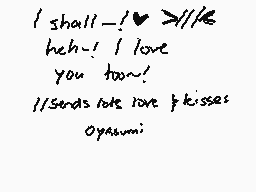 I shall~! ♥ >///<
heh~! I love
you too~!
//sends lots love & kisses
oyasumi